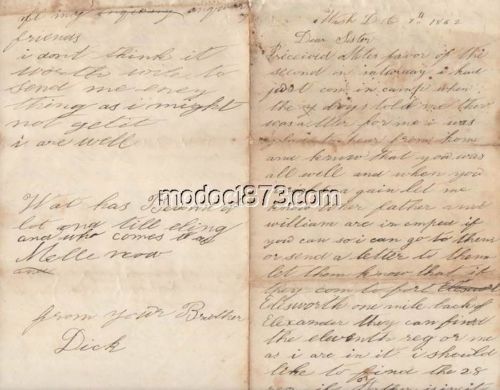 of my
friends
i dont think it
worth to
send me eney
thing as i might
not get it
i are well
Wat has Become of
lot and till eling
and who comes to
Melle now
from your Brother
Dick
modoc1873.com
Wash D.C 7th 1862
Dear Sister
Received Miles favor of the
second on saturday i had
just com in camp when
the y boys told me their
was a letter for me i was
glad to hear from home
and know that you was
all well and when you
a gain let me
know wher father and
william are in emped if
you can so i can go to them
or send a letter to them
let them know that if
they com to fort
Ellsworth one mile back of
Elexander they can find
the eleventh reg or me
as i are in it i should
like to find the 28